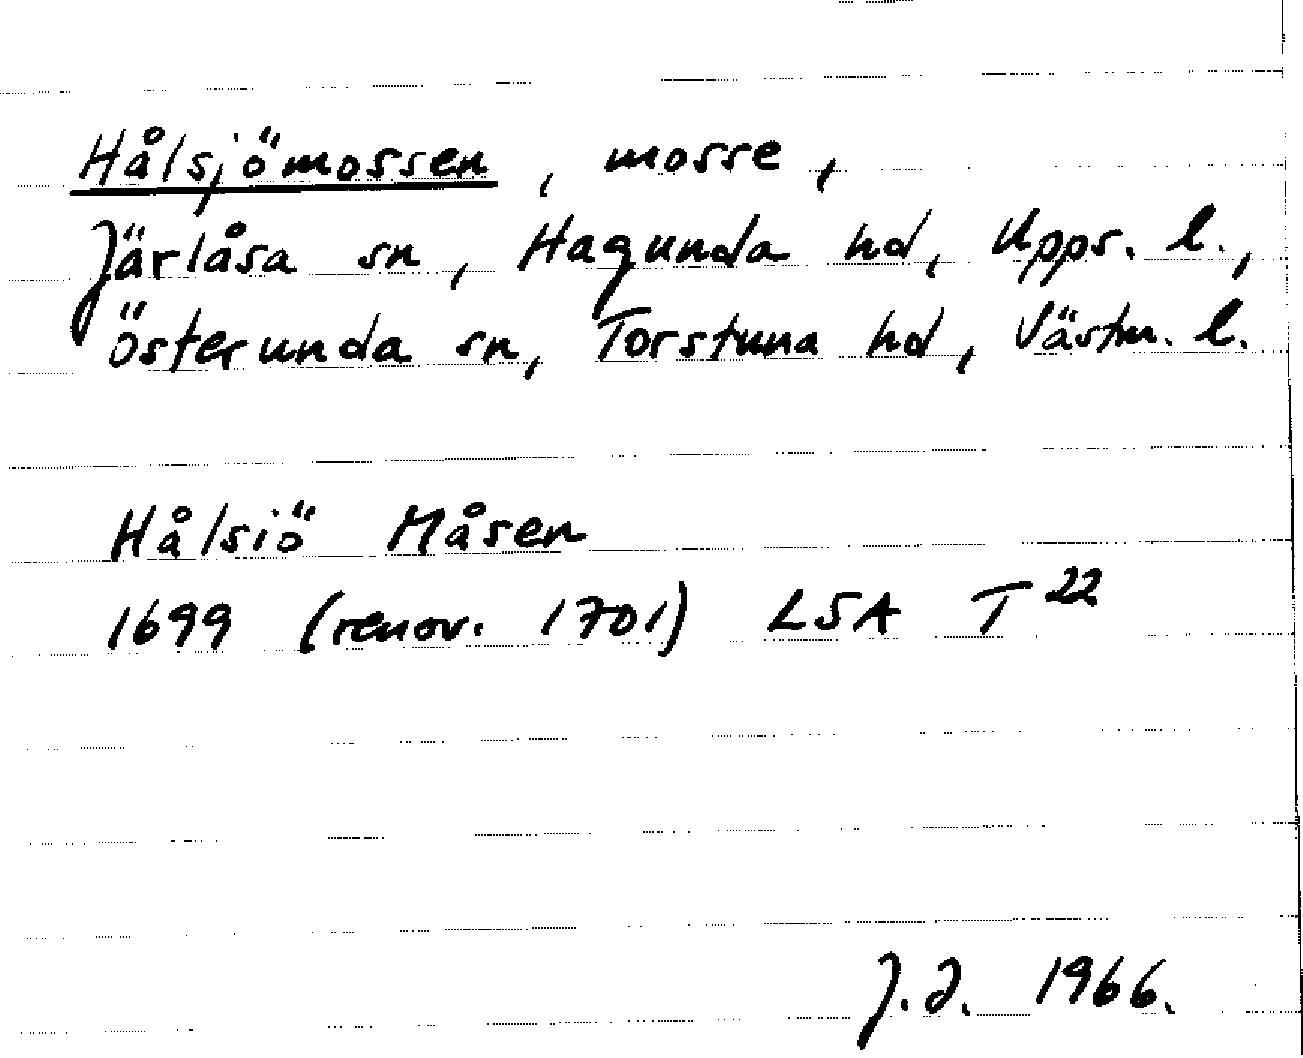 Hålsjömossen, mosse,
Järlåsa sn, Hagunda hd, Upps. l.,
Österunda sn, Torstuna hd, Västm. l.
Hålsiö Måsen
1699 (renov. 1701) LSA T 22
J. J. 1966.